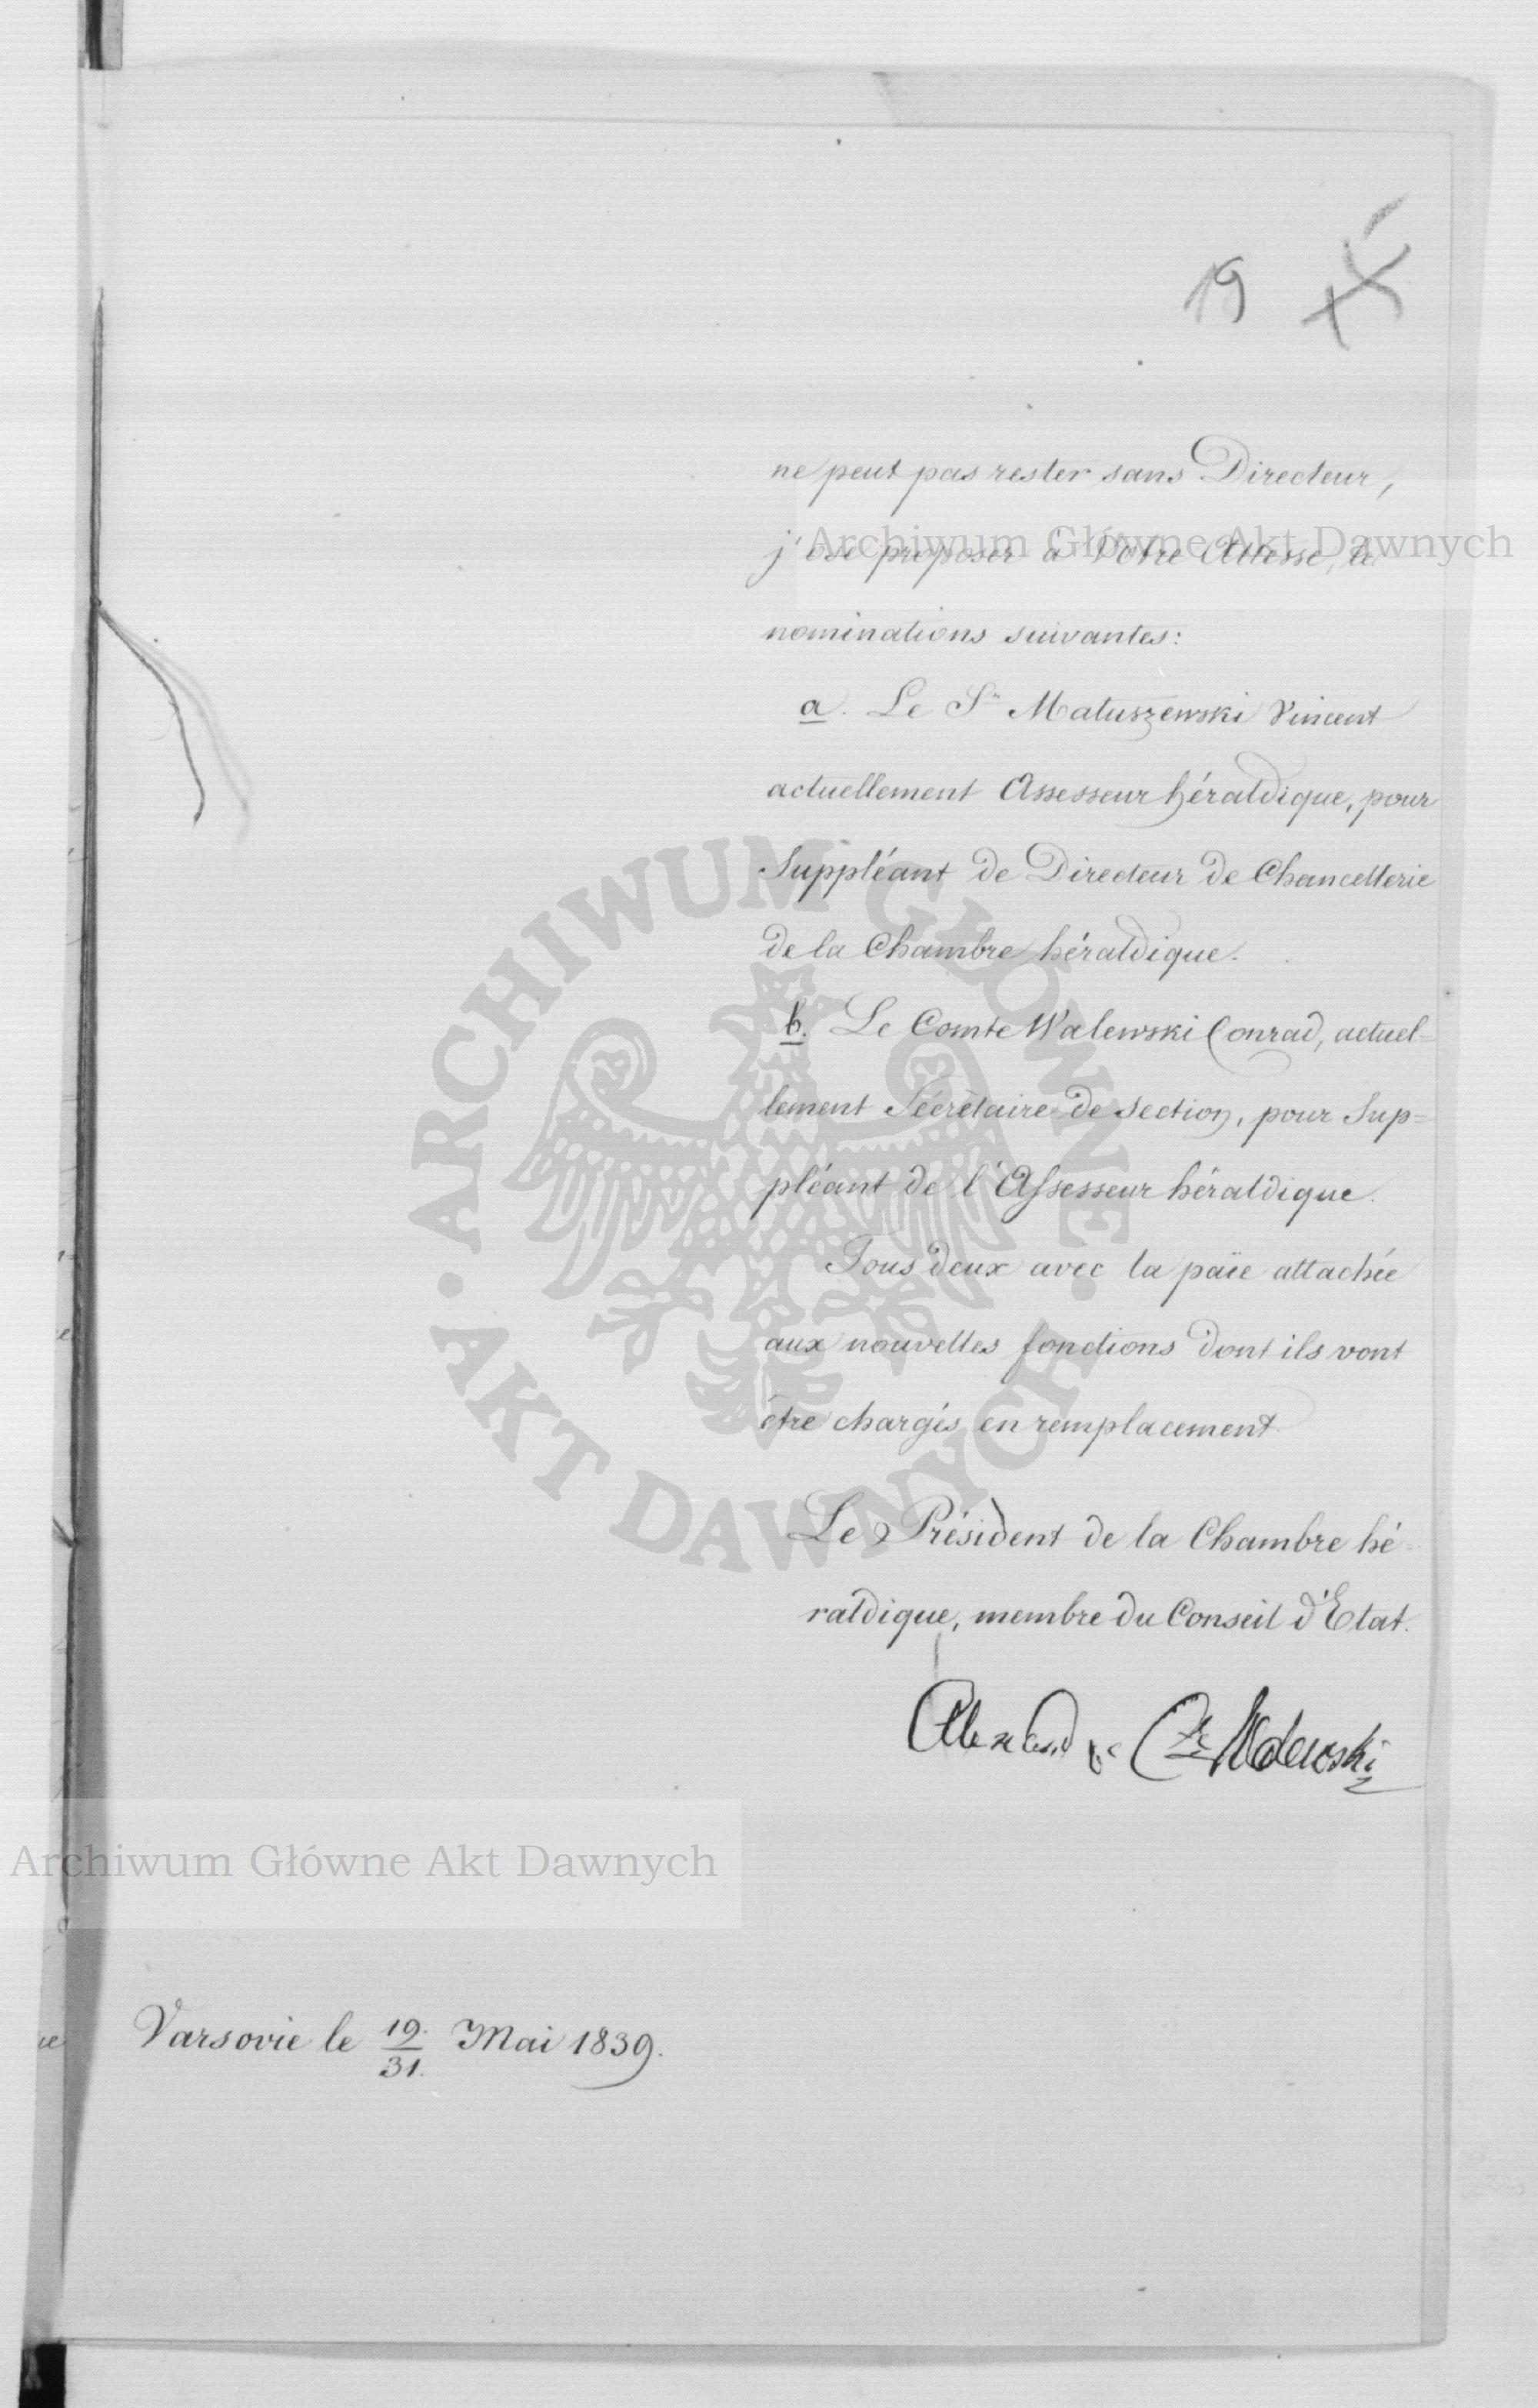 19
ne peut pas rester sans Directeur,
Archiwum Główne Akt Dawnych
j'ose proposer à Votre Altesse, les
nominations suivantes:
a. Le Sr Matuszewski Vincent
actuellement Assesseur héraldique, pour
Suppléant de Directeur de Chancellerie
de la Chambre héraldique.
b. Le Comte Walewski Conrad, actuel=
lement Sécrétaire de section, pour Sup=
pléant de l'Assesseur héraldique.
Tous deux avec la païe attachée
aux nouvelles fonctions dont ils vont
être chargés en remplacement.
Le Président de la Chambre hé=
raldique, membre du Conseil d'Etat.
Alexandre Cte Walewski
Archiwum Główne Akt Dawnych
Varsovie le 19./31. Mai 1839.
ARCHIWUM GŁÓWNE · AKT DAWNYCH ·